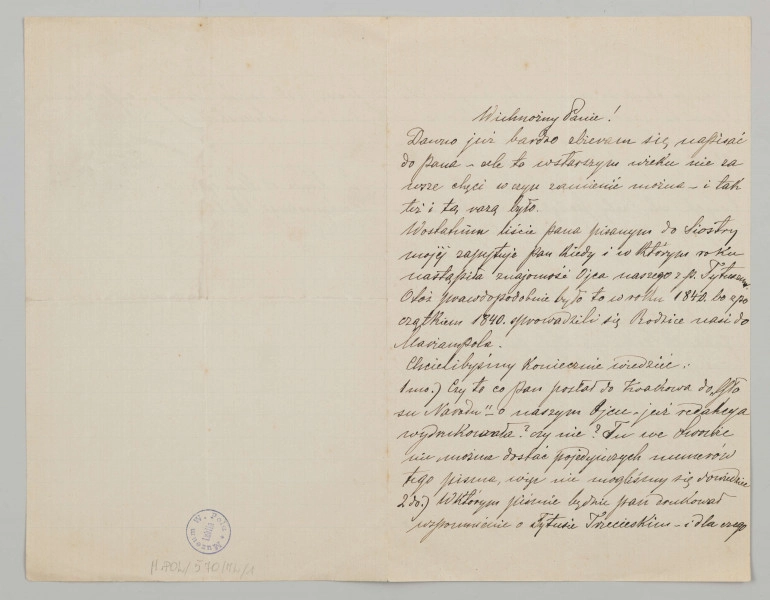 Wielmożny Panie!
Dawno już bardzo zbieram się napisać
do pana – ale to w starszym wieku nie za
wsze chęci w czyn zamienić można – i tak
też i tą razą było.
W ostatnim liście pana pisanym do Siostry
mojéj zapytuje pan kiedy i w którym roku
nastąpiła znajomość Ojca naszego z p. Tytusem.
Otóż prawdopodobnie było to w roku 1840. bo z po
czątkiem 1840. sprowadzili się Rodzice nasi do
Maryampola.
Chcielibyśmy koniecznie wiedzieć:
1mo.) Czy to co pan posłał do Krakowa do „Gło
su Narodu" o naszym Ojcu – już redakcya
wydrukowała? czy nie? Tu we Lwowie
nie można dostać pojedynczych numerów
tego pisma, więc nie mogliśmy się dowiedzieć
2do.) W którym piśmie będzie pan drukował
wspomnienie o Tytusie Trzecieskim – i dla czego
Muzeum W. Pola
Lublin